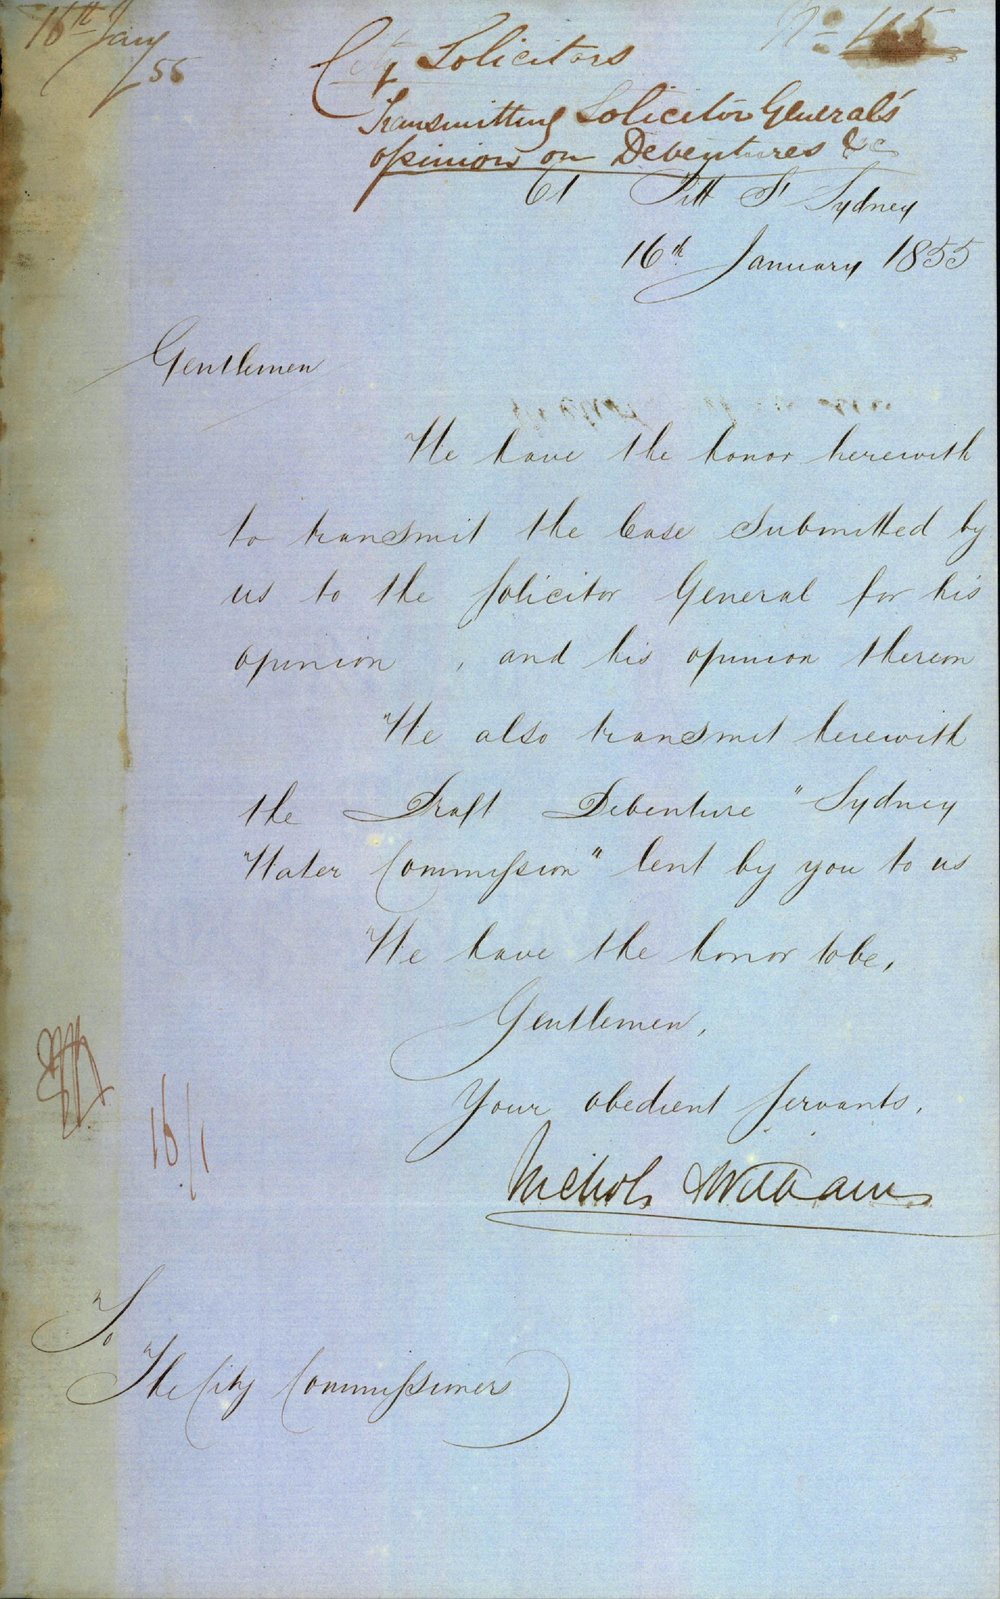 16th Jany
55
City Solicitors
Transmitting Solicitor General's
opinion on Debentures &c
61 Pitt St Sydney
16th January 1855
Gentlemen
We have the honor herewith
to transmit the Case Submitted by
us to the Solicitor General for his
opinion, and his opinion thereon
We also transmit herewith
the Draft Debenture "Sydney
Water Commission" lent by you to us
We have the honor to be,
Gentlemen,
Your obedient Servants,
Nichols & Williams
16/1
To
The City Commissioners